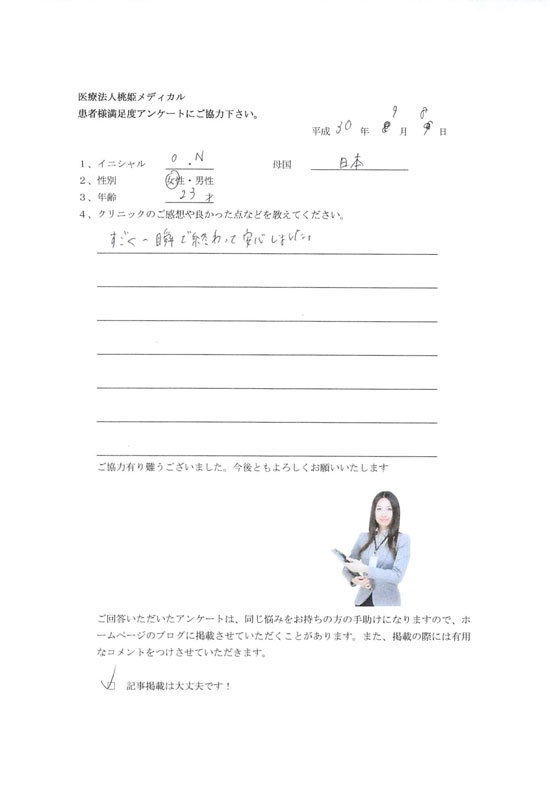 医療法人桃姫メディカル
患者様満足度アンケートにご協力下さい。
平成 30 年 9 月 8 日
1、イニシャル O.N 母国 日本
2、性別 女性・男性
3、年齢 23才
4、クリニックのご感想や良かった点などを教えてください。
すごく一瞬で終わって安心しました。
ご協力有り難うございました。今後ともよろしくお願いいたします
ご回答いただいたアンケートは、同じ悩みをお持ちの方の手助けになりますので、ホ
ームページのブログに掲載させていただくことがあります。また、掲載の際には有用
なコメントをつけさせていただきます。
記事掲載は大丈夫です！